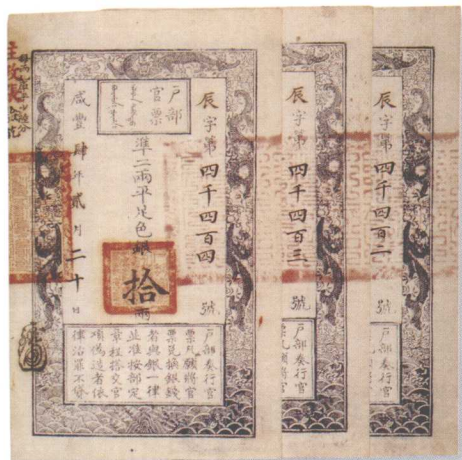 辰字第四千四百四號
戶部官票
準二兩平足色銀拾兩
咸豐肆年貳月二十日
戶部奏行官
票凡願將官
票兌換銀錢
者與銀一律
並准按部定
章程搭交官
項偽造者依
律治罪不貸
辰字第四千四百三號
戶部奏行官
辰字第四千四百二號
戶部奏行官